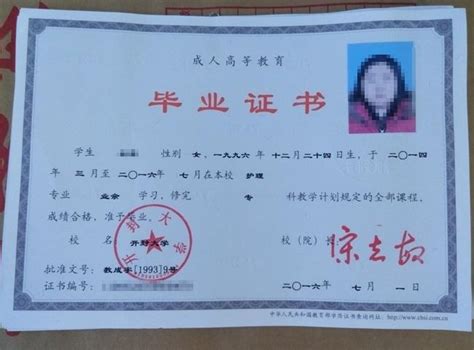 成人高等教育
毕业证书
学生 性别 女，一九九六年 十二月二十四日生，于 二〇一四
三月至二〇一六年 七月在本校 护理
专业 业余 学习，修完 专 科教学计划规定的全部课程，
成绩合格，准予毕业。
校 名 开封大学 校（院）长
开封大学
批准文号：教成字[1993]9号
证书编号：
二〇一六年 七月 一日
中华人民共和国教育部学历证书查询网址：http://www.chsi.com.cn